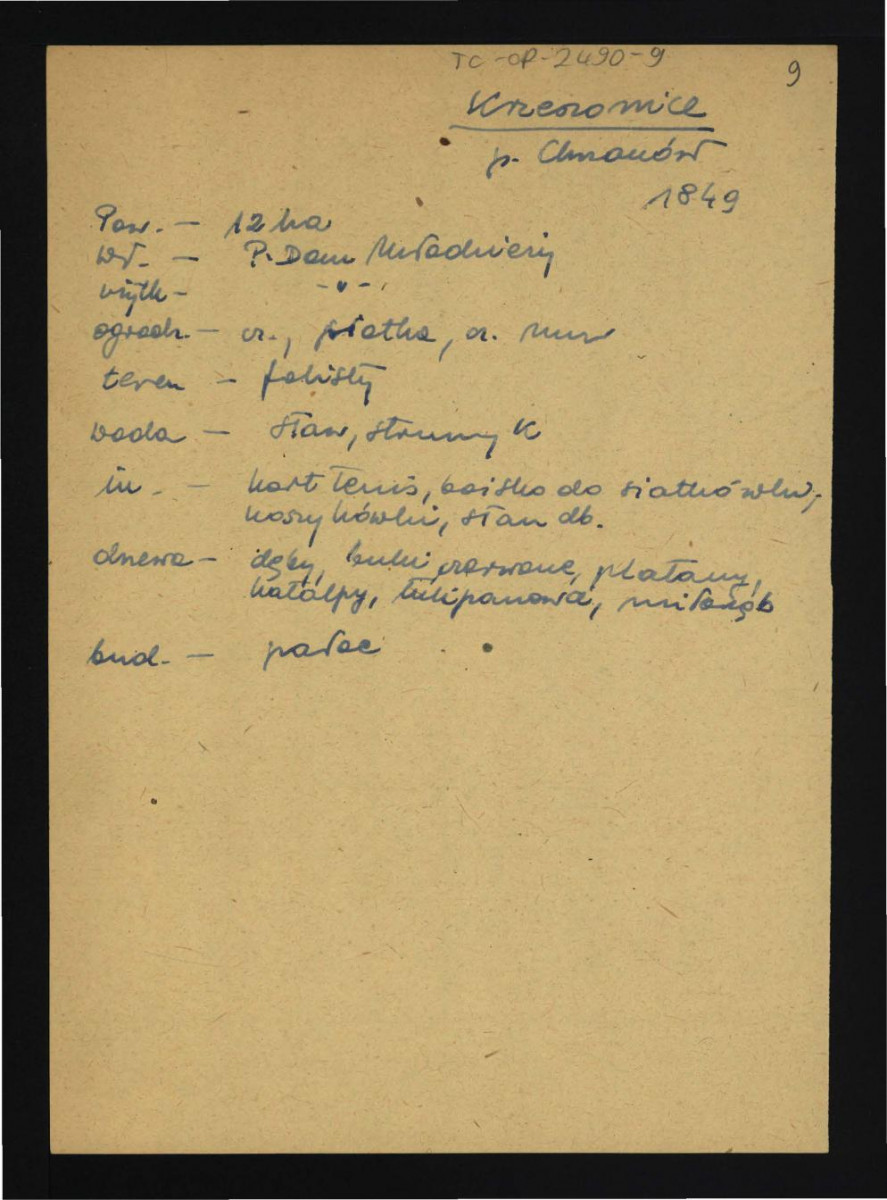 TC-OP-2490-9
9
Krzeszowice
p. Chrzanów
1849
Pow. — 12 ha
Wł. — P. Dom Młodzieży
użytk - -"-
ogrodz. — cz., siatka, cz. mur
teren — falisty
woda — staw, strumyk
in. — kort tenis, boisko do siatkówki,
koszykówki, stan db.
drzewa — dęby, buki czerwone, platany,
katalpy, tulipanowa, miłorząb
bud. — pałac